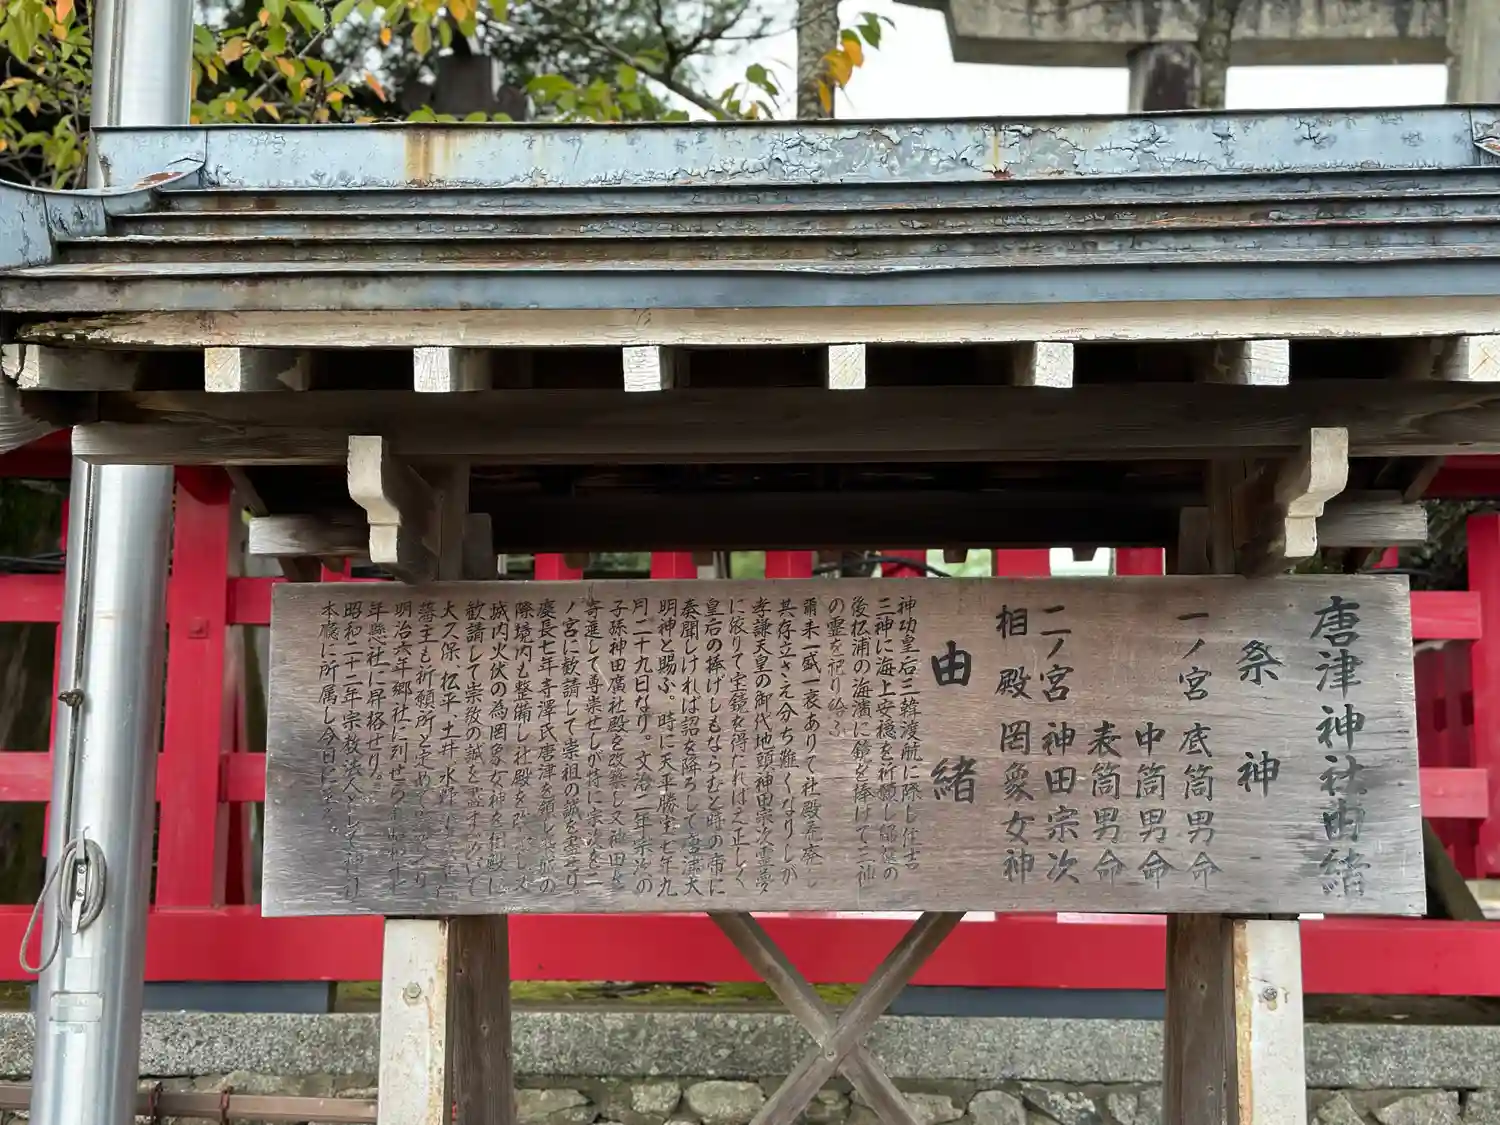 唐津神社由緒
祭神
一ノ宮 底筒男命
中筒男命
表筒男命
二ノ宮 神田宗次
相殿 罔象女神
由緒
神功皇后三韓渡航に際し住吉
三神に海上安穏を祈願し帰還の
後松浦の海濱に鏡を捧げて三神
の霊を祀り給ふ
爾来一盛一衰ありて社殿荒廃し
其存立さえ分ち難くなりしが
孝謙天皇の御代地頭神田宗次霊夢
に依りて宝鏡を得たればこ正しく
皇后の捧げしもならむと時の帝に
奏聞しければ詔を降ろして唐津大
明神と賜ふ。時に天平勝宝七年九
月二十九日なり。文治二年宗次の
子孫神田廣社殿を改築し又神田を
寄進して尊崇せしが特に宗次を二
ノ宮に歓請して崇祖の誠を盡せり。
慶長七年寺澤氏唐津を領し築城の
際境内も整備し社殿を し又
城内火伏の為罔象女神を相殿に
歓請して崇敬の誠を
大久保、松平、土井、水野、
藩主も祈願所と定め
明治六年郷社に列せられ昭和十七
年縣社に昇格せり。
昭和二十二年宗教法人として神社
本廳に所属し今日に至る。